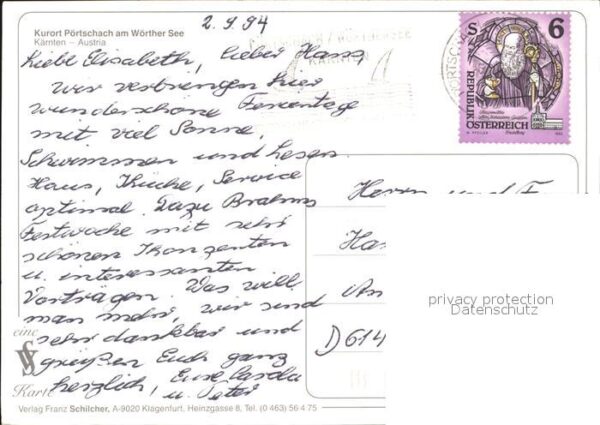 2.9.94
Kurort Pörtschach am Wörther See
Kärnten – Austria
Liebe Elisabeth, lieber Hans,
wir verbringen hier
wunderschöne Ferientage
mit viel Sonne,
Schwimmen und Lesen.
Haus, Küche, Service
optimal. Dazu Brahms
Festwoche mit sehr
schönen Konzerten
u. interessanten
Vorträgen. Was will
man mehr, wir sind
sehr dankbar und
grüßen Euch ganz
herzlich, Eure Carla
u. Peter
eine
Karte
Verlag Franz Schilcher, A-9020 Klagenfurt, Heinzgasse 8, Tel. (0 463) 56 4 75
S 6
REPUBLIK
ÖSTERREICH
Herrn und F
Ha
An
D 614
privacy protection
Datenschutz